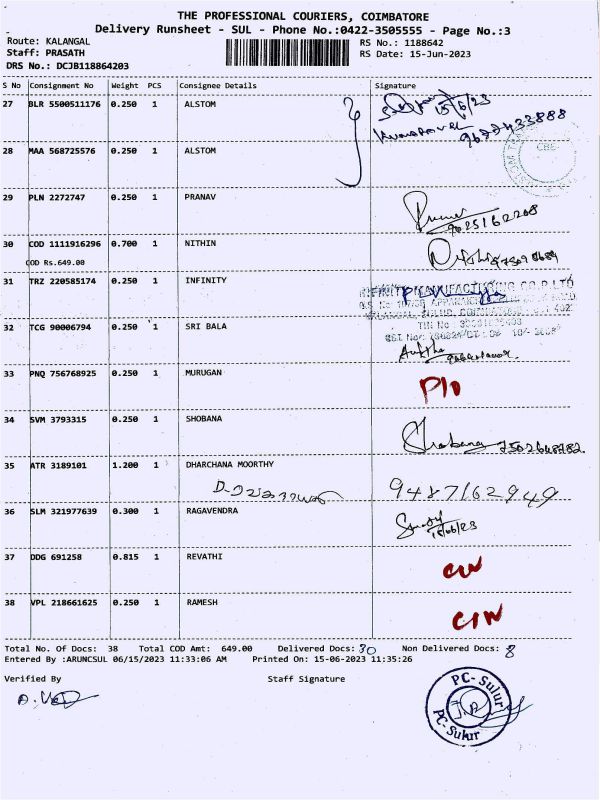 THE PROFESSIONAL COURIERS, COIMBATORE
Delivery Runsheet - SUL - Phone No.:0422-3505555 - Page No.:3
Route: KALANGAL RS No.: 1188642
Staff: PRASATH RS Date: 15-Jun-2023
DRS No.: DCJB118864203
S No Consignment No Weight PCS Consignee Details Signature
27 BLR 5500511176 0.250 1 ALSTOM 15/6/23
9677433888
28 MAA 568725576 0.250 1 ALSTOM
29 PLN 2272747 0.250 1 PRANAV
9025162208
30 COD 1111916296 0.700 1 NITHIN
COD Rs.649.00
31 TRZ 220585174 0.250 1 INFINITY
32 TCG 90006794 0.250 1 SRI BALA
33 PNQ 756768925 0.250 1 MURUGAN
34 SVM 3793315 0.250 1 SHOBANA Shobana
35 ATR 3189101 1.200 1 DHARCHANA MOORTHY
9487162949
36 SLM 321977639 0.300 1 RAGAVENDRA
15/06/23
37 DDG 691258 0.815 1 REVATHI
38 VPL 218661625 0.250 1 RAMESH
Total No. Of Docs: 38 Total COD Amt: 649.00 Delivered Docs: 30 Non Delivered Docs: 8
Entered By :ARUNCSUL 06/15/2023 11:33:06 AM Printed On: 15-06-2023 11:35:26
Verified By Staff Signature
PC-Sulur
PC-Sulur